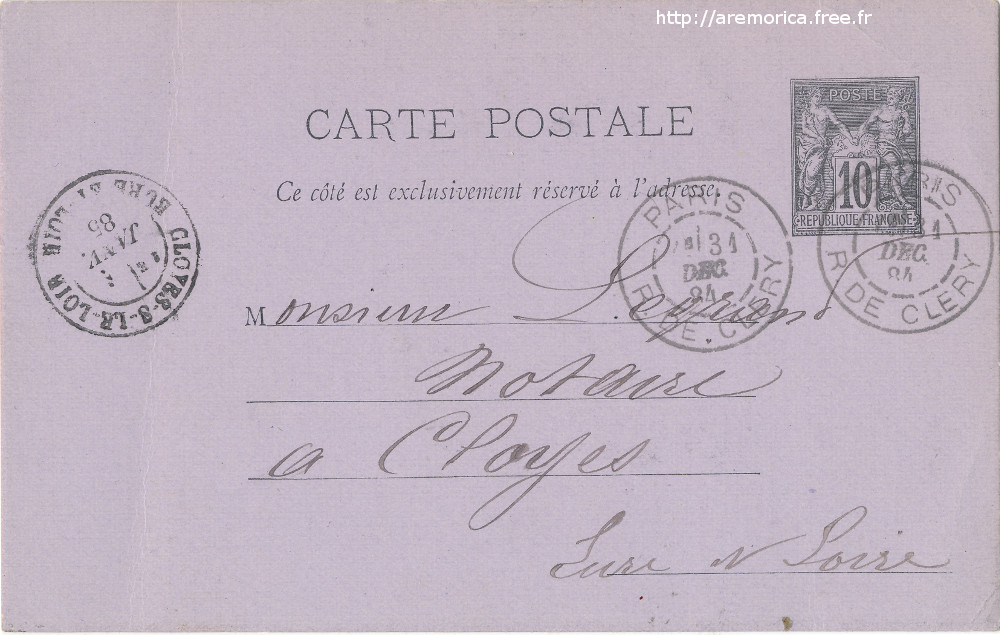 http://aremorica.free.fr
POSTE
10
REPUBLIQUE FRANÇAISE
CARTE POSTALE
Ce côté est exclusivement réservé à l'adresse.
PARIS
31
DEC.
84
R. DE. CLERY
PARIS
31
DEC.
84
R. DE CLERY
CLOYES-S-LE-LOIR
EURE ET LOIR
JANV.
85
Monsieur
Notaire
a Cloyes
Eure & Loire